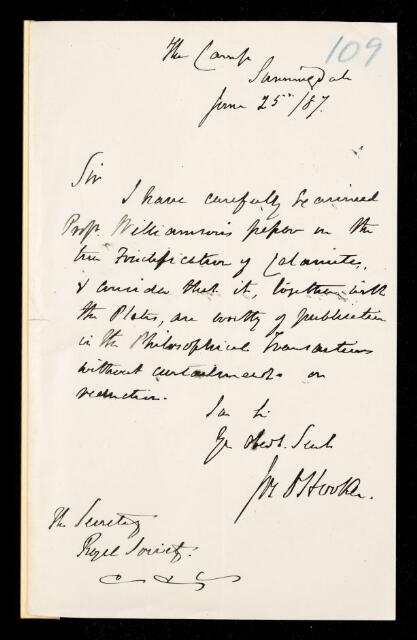 The Camp
109
Sunningdale
June 25th/87.
Sir
I have carefully examined
Profr. Williamson's paper on the
true Fructification of Calamites,
& consider that it, together with
the Plates, are worthy of publication
in the Philosophical Transactions
without curtailment or
reduction.
I am Sir
Yr Obedt. Servt
Jos D Hooker.
The Secretary
Royal Society.